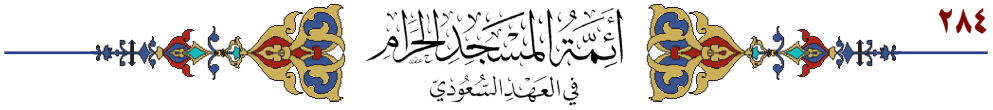 ٢٨٤
أَئِمَّةُ الْمَسْجِدِ الْحَرَامِ
فِي الْعَهْدِ السُّعُودِيِّ